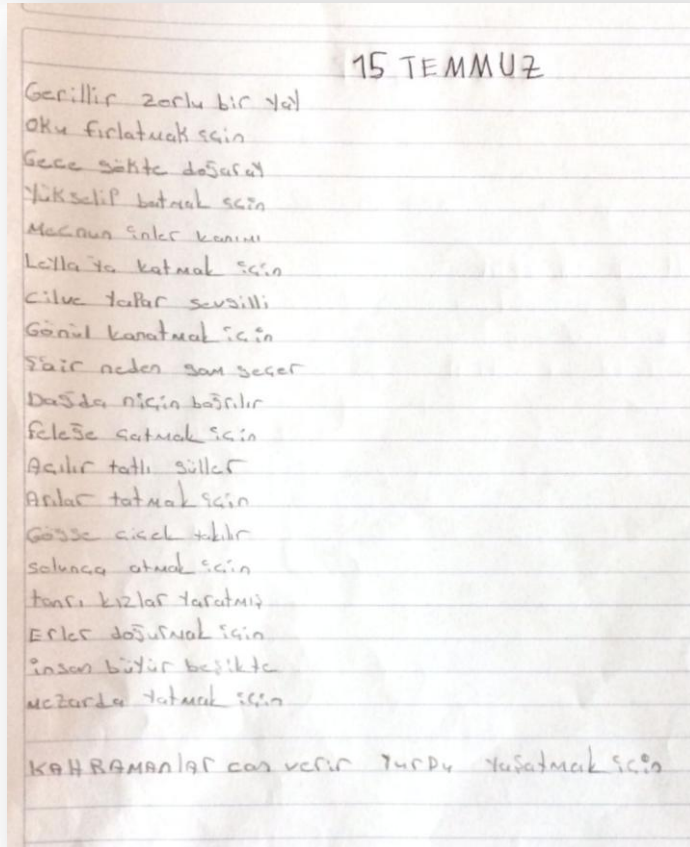 15 TEMMUZ
Gerillir zorlu bir yay
Oku fırlatmak için
Gece gökte doğaray
Yükselip batmak için
Mecnun inler kanını
Leyla ya katmak için
Cilve yapar sevgilli
Gönül kanatmak için
Şair neden gam seçer
Dağda niçin bağrılır
feleğe çatmak için
Açılır tatlı güller
Arılar tatmak için
Göğse çiçek takılır
solunca atmak için
tanrı kızlar yaratmış
Erler doğurmak için
insan büyür beşikte
mezarda yatmak için
KAHRAMANlar can verir Yurdu Yaşatmak için